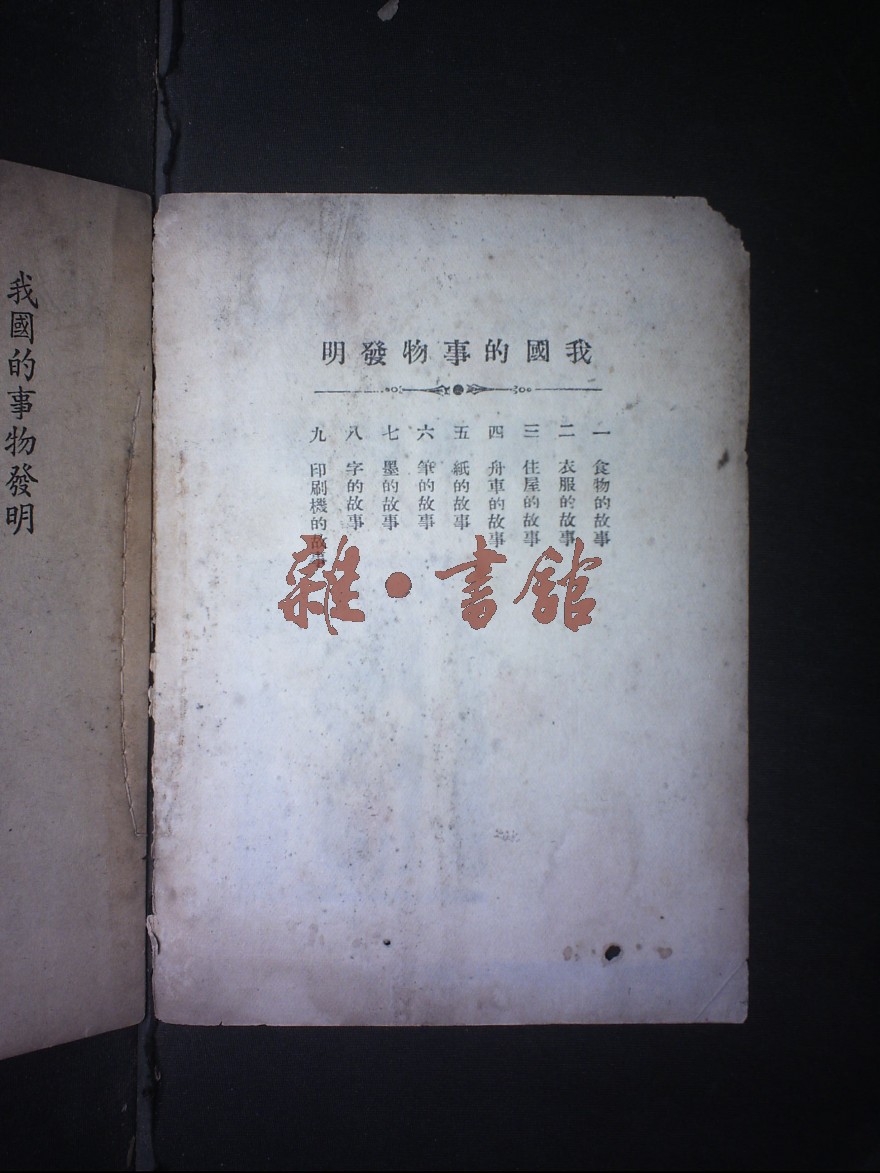 我國的事物發明
一 食物的故事
二 衣服的故事
三 住屋的故事
四 舟車的故事
五 紙的故事
六 筆的故事
七 墨的故事
八 字的故事
九 印刷機的故事
雜•書館
我國的事物發明